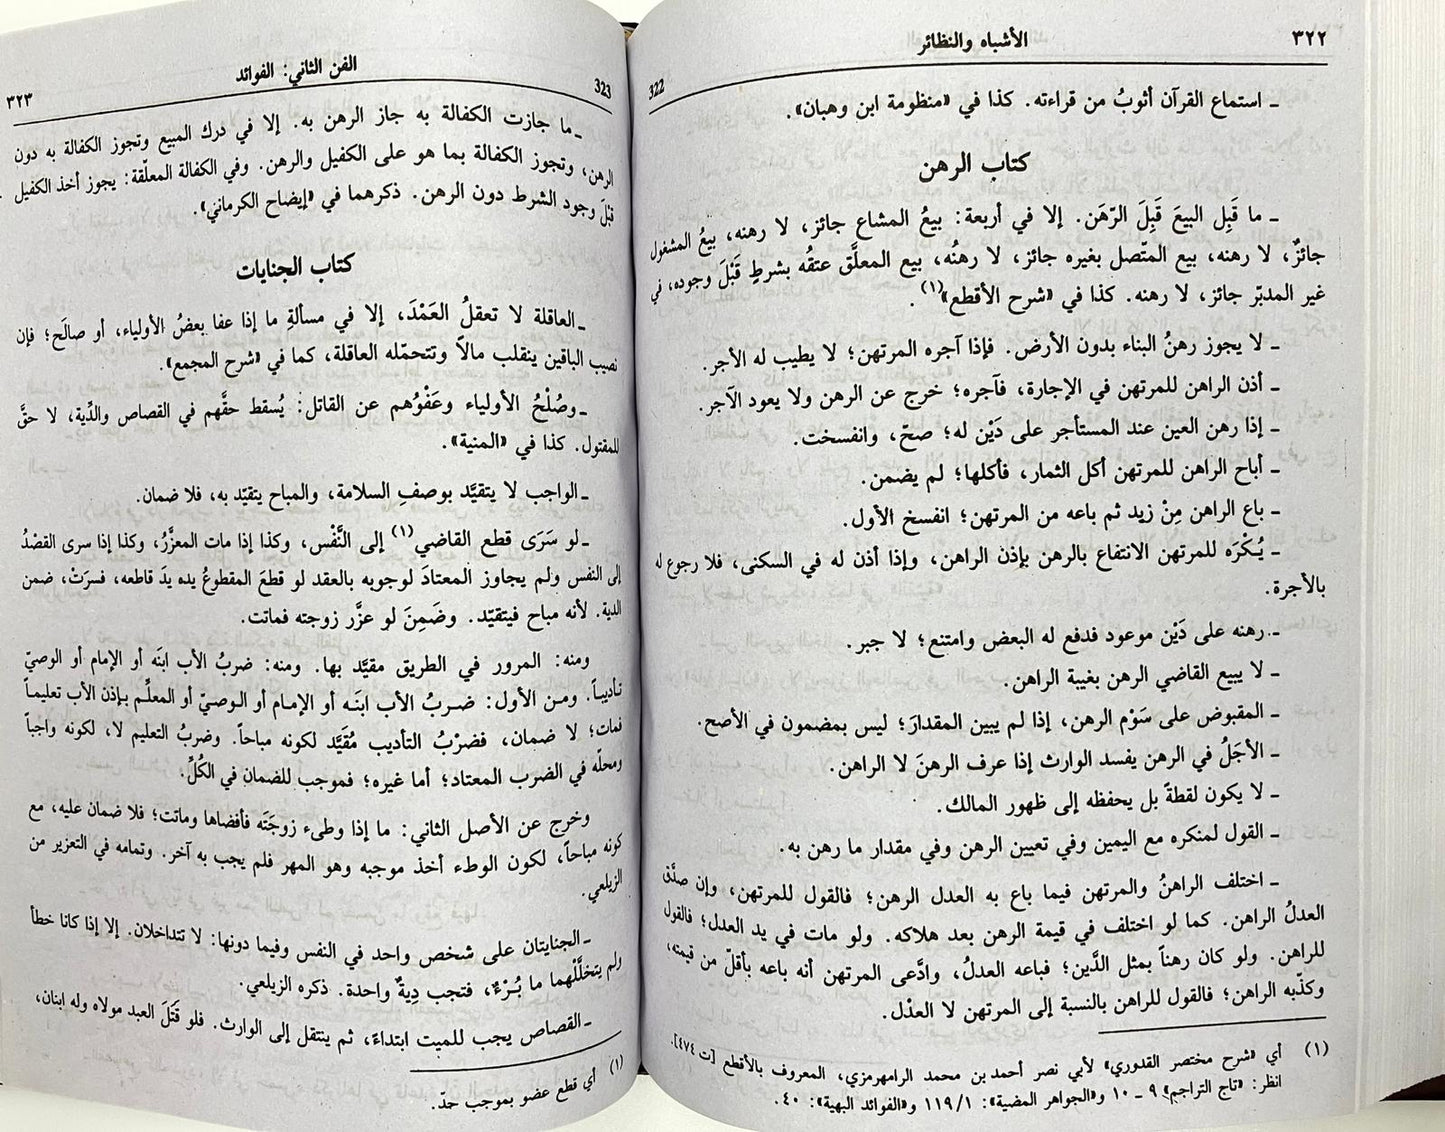 ٣٢٢
الأشباه والنظائر
322
ـ استماع القرآن أثوبُ من قراءته. كذا في «منظومة ابن وهبان».
كتاب الرهن
ـ ما قَبِل البيعَ قَبِلَ الرّهَن. إلا في أربعة: بيعُ المشاع جائز، لا رهنه، بيعُ المشغول
جائزٌ، لا رهنه، بيع المتّصل بغيره جائز، لا رهنُه، بيع المعلَّق عتقُه بشرطٍ قَبْلَ وجوده، في
غير المدبّر جائز، لا رهنه. كذا في «شرح الأقطع»(١).
ـ لا يجوز رهنُ البناء بدون الأرض. فإذا آجره المرتهن؛ لا يطيب له الأجر.
ـ أذن الراهن للمرتهن في الإجارة، فآجره؛ خرج عن الرهن ولا يعود الآجر.
ـ إذا رهن العين عند المستأجر على دَيْن له؛ صحّ، وانفسخت.
ـ أباح الراهن للمرتهن أكل الثمار، فأكلها؛ لم يضمن.
ـ باع الراهن مِنْ زيد ثم باعه من المرتهن؛ انفسخ الأول.
ـ يُكْرَه للمرتهن الانتفاع بالرهن بإذن الراهن، وإذا أذن له في السكنى، فلا رجوع له
بالأجرة.
ـ رهنه على دَيْن موعود فدفع له البعض وامتنع؛ لا جبر.
ـ لا يبيع القاضي الرهن بغيبة الراهن.
ـ المقبوض على سَوْم الرهن، إذا لم يبين المقدارَ؛ ليس بمضمون في الأصح.
ـ الأجَلُ في الرهن يفسد الوارث إذا عرف الرهنَ لا الراهن.
ـ لا يكون لقطةً بل يحفظه إلى ظهور المالك.
ـ القول لمنكره مع اليمين وفي تعيين الرهن وفي مقدار ما رهن به.
ـ اختلف الراهنُ والمرتهن فيما باع به العدل الرهن؛ فالقول للمرتهن، وإن صدَّق
العدلُ الراهن. كما لو اختلف في قيمة الرهن بعد هلاكه. ولو مات في يد العدل؛ فالقول
للراهن. ولو كان رهناً بمثل الدَّين؛ فباعه العدلُ، وادَّعى المرتهن أنه باعه بأقلّ من قيمته،
وكذّبه الراهن؛ فالقول للراهن بالنسبة إلى المرتهن لا العدْل.
(١) أي «شرح مختصر القدوري» لأبي نصر أحمد بن محمد الرامهرمزي، المعروف بالأقطع [ت ٤٧٤].
انظر: «تاج التراجم» ٩ ـ ١٠ و«الجواهر المضية»: ١/١١٩ و«الفوائد البهية»: ٤٠.
323
الفن الثاني: الفوائد
٣٢٣
ـ ما جازت الكفالة به جاز الرهن به. إلا في درك المبيع وتجوز الكفالة به دون
الرهن، وتجوز الكفالة بما هو على الكفيل والرهن. وفي الكفالة المعلّقة: يجوز أخذ الكفيل
قبْلَ وجود الشرط دون الرهن. ذكرهما في «إيضاح الكرماني».
كتاب الجنايات
ـ العاقلة لا تعقلُ العَمْدَ، إلا في مسألةِ ما إذا عفا بعضُ الأولياء، أو صالَح؛ فإن
نصيب الباقين ينقلب مالاً وتتحمّله العاقلة، كما في «شرح المجمع».
ـ وصُلْحُ الأولياء وعَفْوُهم عن القاتل: يُسقط حقَّهم في القصاص والدِّية، لا حقَّ
للمقتول. كذا في «المنية».
ـ الواجب لا يتقيَّد بوصفِ السلامة، والمباح يتقيّد به، فلا ضمان.
ـ لو سَرَى قطع القاضي(١) إلى النَّفْس، وكذا إذا مات المعزَّرُ، وكذا إذا سرى القصْدُ
إلى النفس ولم يجاوز المعتادَ لوجوبه بالعقد لو قطعَ المقطوعُ يده يدَ قاطعه، فسرَتْ، ضمن
الدية. لأنه مباح فيتقيّد. وضَمِنَ لو عزَّر زوجته فماتت.
ومنه: المرور في الطريق مقيَّد بها. ومنه: ضربُ الأب ابنَه أو الإمام أو الوصيّ
تأديباً. ومن الأول: ضربُ الأب ابنَه أو الإمام أو الوصيّ أو المعلِّم بإذن الأب تعليماً
فمات؛ لا ضمان، فضرْبُ التأديب مُقَيَّد لكونه مباحاً. وضربُ التعليم لا، لكونه واجباً
ومحلّه في الضرب المعتاد؛ أما غيره؛ فموجب للضمان في الكُلِّ.
وخرج عن الأصل الثاني: ما إذا وطىء زوجَتَه فأفضاها وماتت؛ فلا ضمان عليه، مع
كونه مباحاً، لكون الوطء أخذ موجبه وهو المهر فلم يجب به آخر. وتمامه في التعزير من
الزيلعي.
ـ الجنايتان على شخص واحد في النفس وفيما دونها: لا تتداخلان. إلا إذا كانا خطأً
ولم يتخلَّلْهما ما بُرْءٌ، فتجب دِيةٌ واحدة. ذكره الزيلعي.
ـ القصاص يجب للميت ابتداءً، ثم ينتقل إلى الوارث. فلو قَتَلَ العبد مولاه وله ابنان،
(١) أي قطع عضو بموجب حدّ.